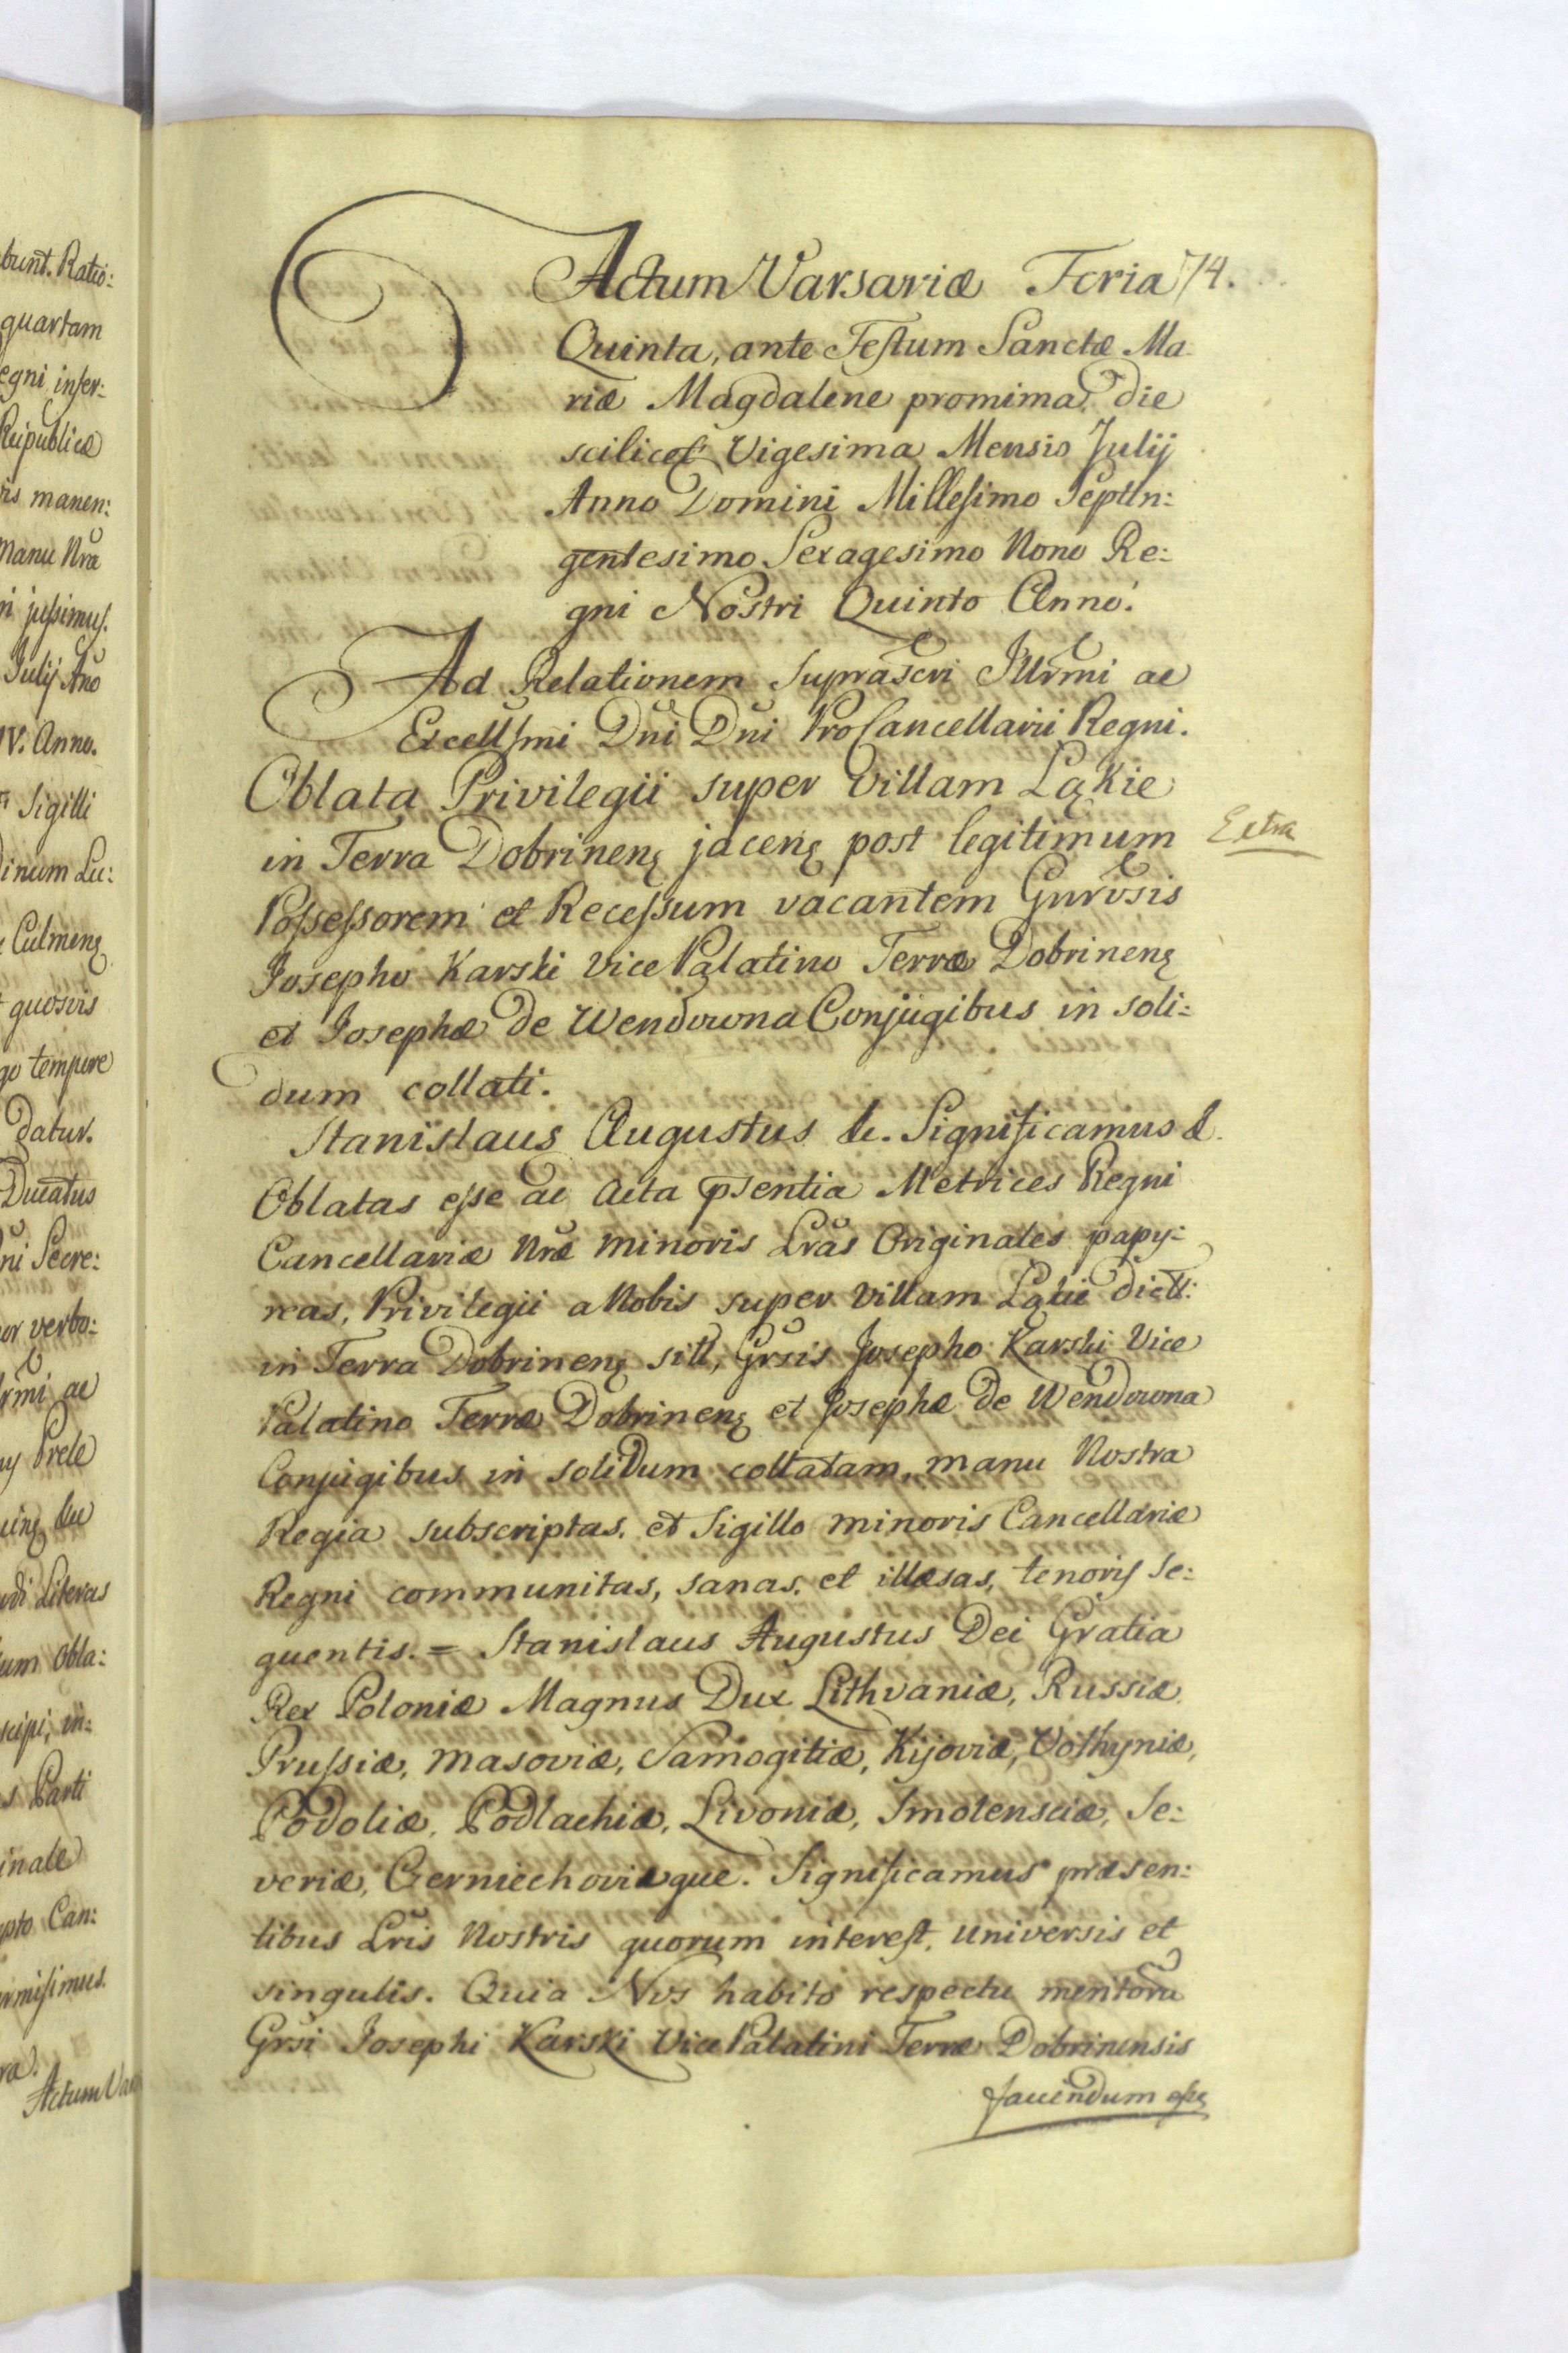 bunt. Ratio:
quartam
egni inser:
Reipublicæ
ris manen:
manu Nrã
ri jussimus.
Julij Año
IV. Anno.
Sigilli
inum Lu:
Culmenę
quosvis
go tempore
datur.
Ducatus
ni Secre:
or verbo:
rmi ac
Prele
adi Literas
um Obla:
scipi, in:
s Parti
inale
pto Can:
rmisimus.
Actum Var
Actum Varsaviæ Feria 74.
Quinta, ante Festum Sanctæ Ma
riæ Magdalene promima die
scilicet Vigesima Mensis Julij
Anno Domini Millesimo Septin:
gentesimo Sexagesimo Nono Re:
gni Nostri Quinto Anno.
Ad Relationem Suprascri Illrmi ac
Excellsmi Dñi Dñi ProCancellarii Regni.
Oblata Privilegii super Villam Łąkie
in Terra Dobrinenę jacenę post legitimum
Possessorem et Recessum vacantem Gnrosis
Josepho Karski Vice Palatino Terræ Dobrinenę
et Josephæ de Wendowna Conjugibus in soli:
dum collati.
Extra
Stanislaus Augustus &c. Significamus &.
Oblatas esse ac Acta psentia Metrices Regni
Cancellariæ Nræ minoris Lrãs Originales papy:
reas, Privilegii a Nobis super Villam Łąkie dictt:
in Terra Dobrinenę sitt, Grsis Josepho Karski Vice
Palatino Terræ Dobrinenę et Josephæ de Wendowna
Conjugibus in solidum collatam, manu Nostra
Regia subscriptas, et Sigillo minoris Cancellariæ
Regni communitas, sanas, et illæsas, tenoris se:
quentis. = Stanislaus Augustus Dei Gratia
Rex Poloniæ Magnus Dux Lithvaniæ, Russiæ
Prussiæ, Masoviæ, Samogitiæ, Kijoviæ, Volhyniæ,
Podoliæ, Podlachiæ, Livoniæ, Smolensciæ, Se:
veriæ, Czerniechoviæque. Significamus præsen:
tibus Lris Nostris quorum interest, universis et
singulis. Quia Nos habito respectu meritorũ
Grsi Josephi Karski Vice Palatini Terræ Dobrinensis
favendum esse